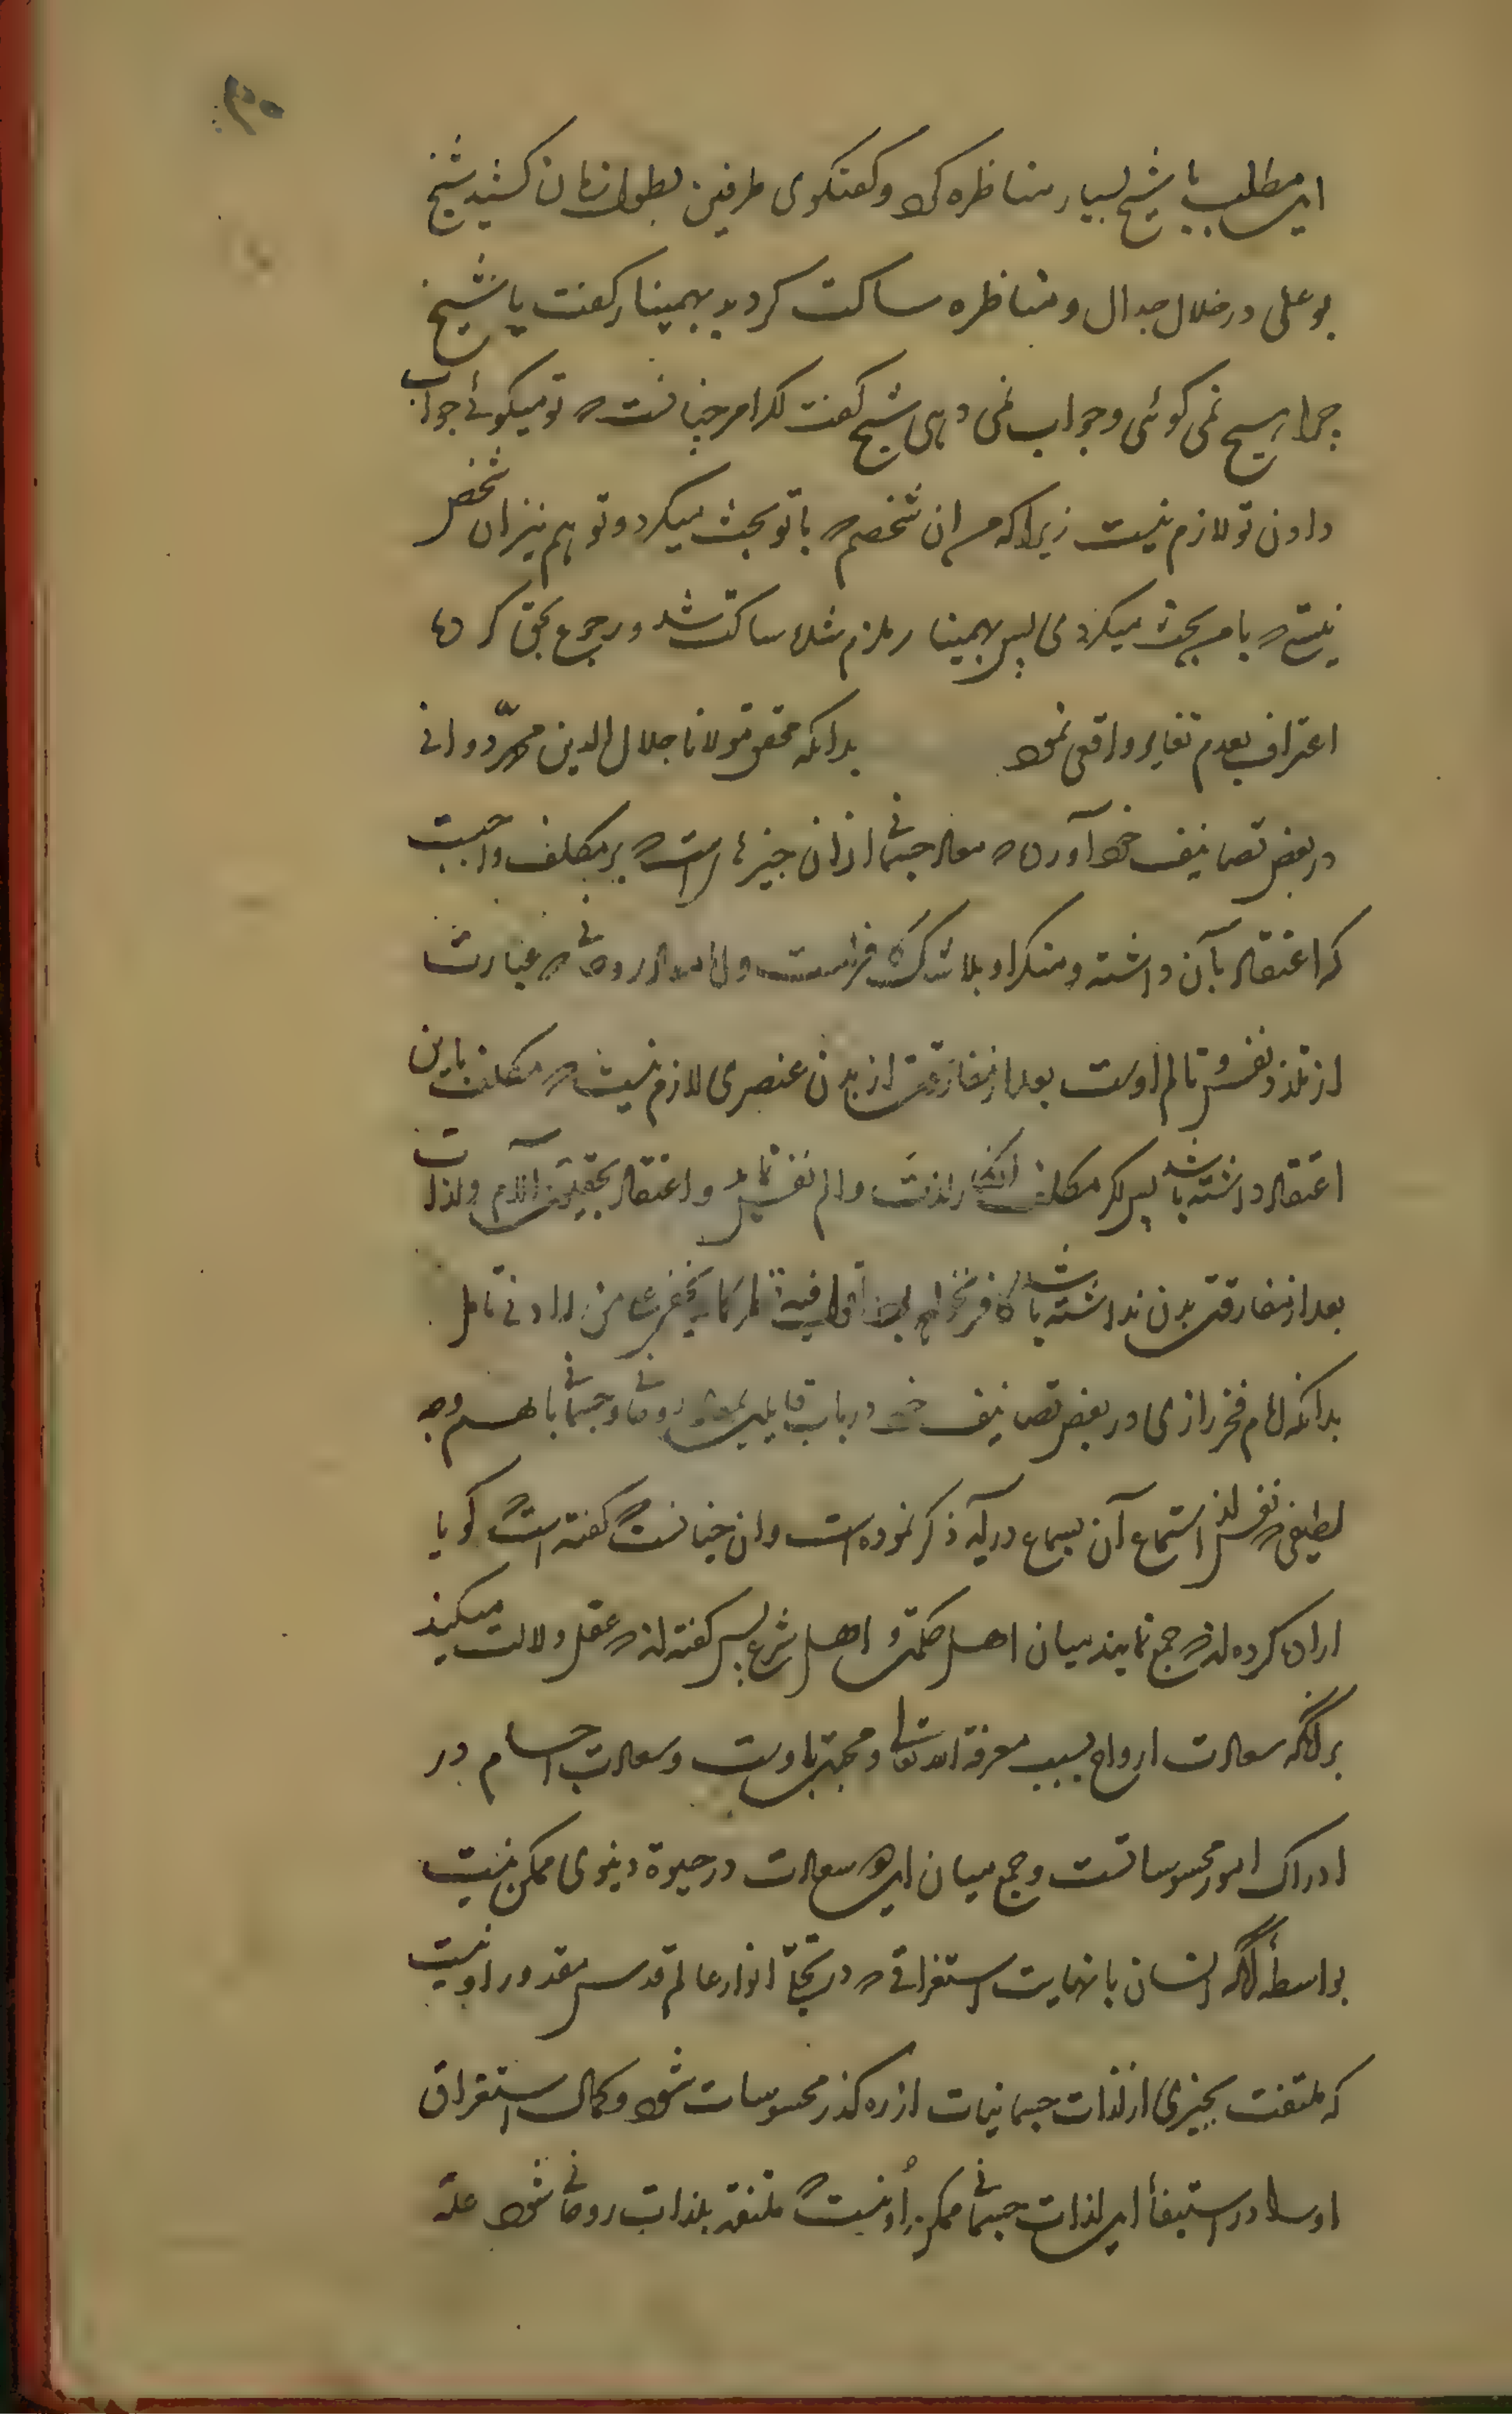 این مطلب با شیخ بسیار مناظره کرد و کفتکوی طرفین بطول زمان کشید شیخ
بو علی در خلال جدال و مناظره ساکت کردید بهمینار کفت یا شیخ
چرا هیچ نمی کوئی و جواب نمی دهی شیخ کفت اکر امر چنانست که تو میکوئی جواب
دادن تو لازم نیست زیرا که من آن شخصم که با تو بحث میکرد و تو هم نیز آن شخص
نیستی که با من بحث میکردی پس بهمینار ملزم شده ساکت شد و رجوع بحق کرده
اعتراف بعدم تغایر واقعی نمود بدانکه محقق مولانا جلال الدین محمد دوانی
در بعض تصانیف خود آورده که معاد جسمانی از آن چیزها است که بر مکلف واجبست
که اعتقاد بآن داشته و منکر او بلا شک کافر است و اما معاد روحانی که عبارت
از تلذذ نفس و تالم اوست بعد از مفارقت از بدن عنصری لازم نیست که مکلف باین
اعتقاد داشته باشد پس اکر مکلف انکار لذت و الم نفسانی و اعتقاد بحقیقت آلام و لذات
بعد از مفارقت بدن نداشته باشد کافر نخواهد بود اقول فیه تامل کما لا یخفی علی من له ادنی تامل
بدانکه امام فخر رازی در بعض تصانیف خود در باب قایلین بمعاد روحانی و جسمانی با هم وجه
لطیفی که نفس از استماع آن بسماع درآید ذکر نموده است و آن چنانست که کفته است کویا
اراده کرده اند که جمع نمایند میان اهل حکمت و اهل شرع پس کفته اند که عقل دلالت میکند
بر آنکه سعادت ارواح بسبب معرفة الله تعالی و محبت باوست و سعادت اجسام در
ادراک امور محسوساتست و جمع میان این دو سعادت در حیوة دنیوی ممکن نیست
بواسطهٔ آنکه انسان با نهایت استغراقی که در تجلی انوار عالم قدس مقدور او نیست
که ملتفت بچیزی از لذات جسمانیات از ره کذر محسوسات شود و کمال استغراق
او را در استیفأ این لذات جسمانی ممکن او نیست که ملتفت بلذات روحانی شود علة